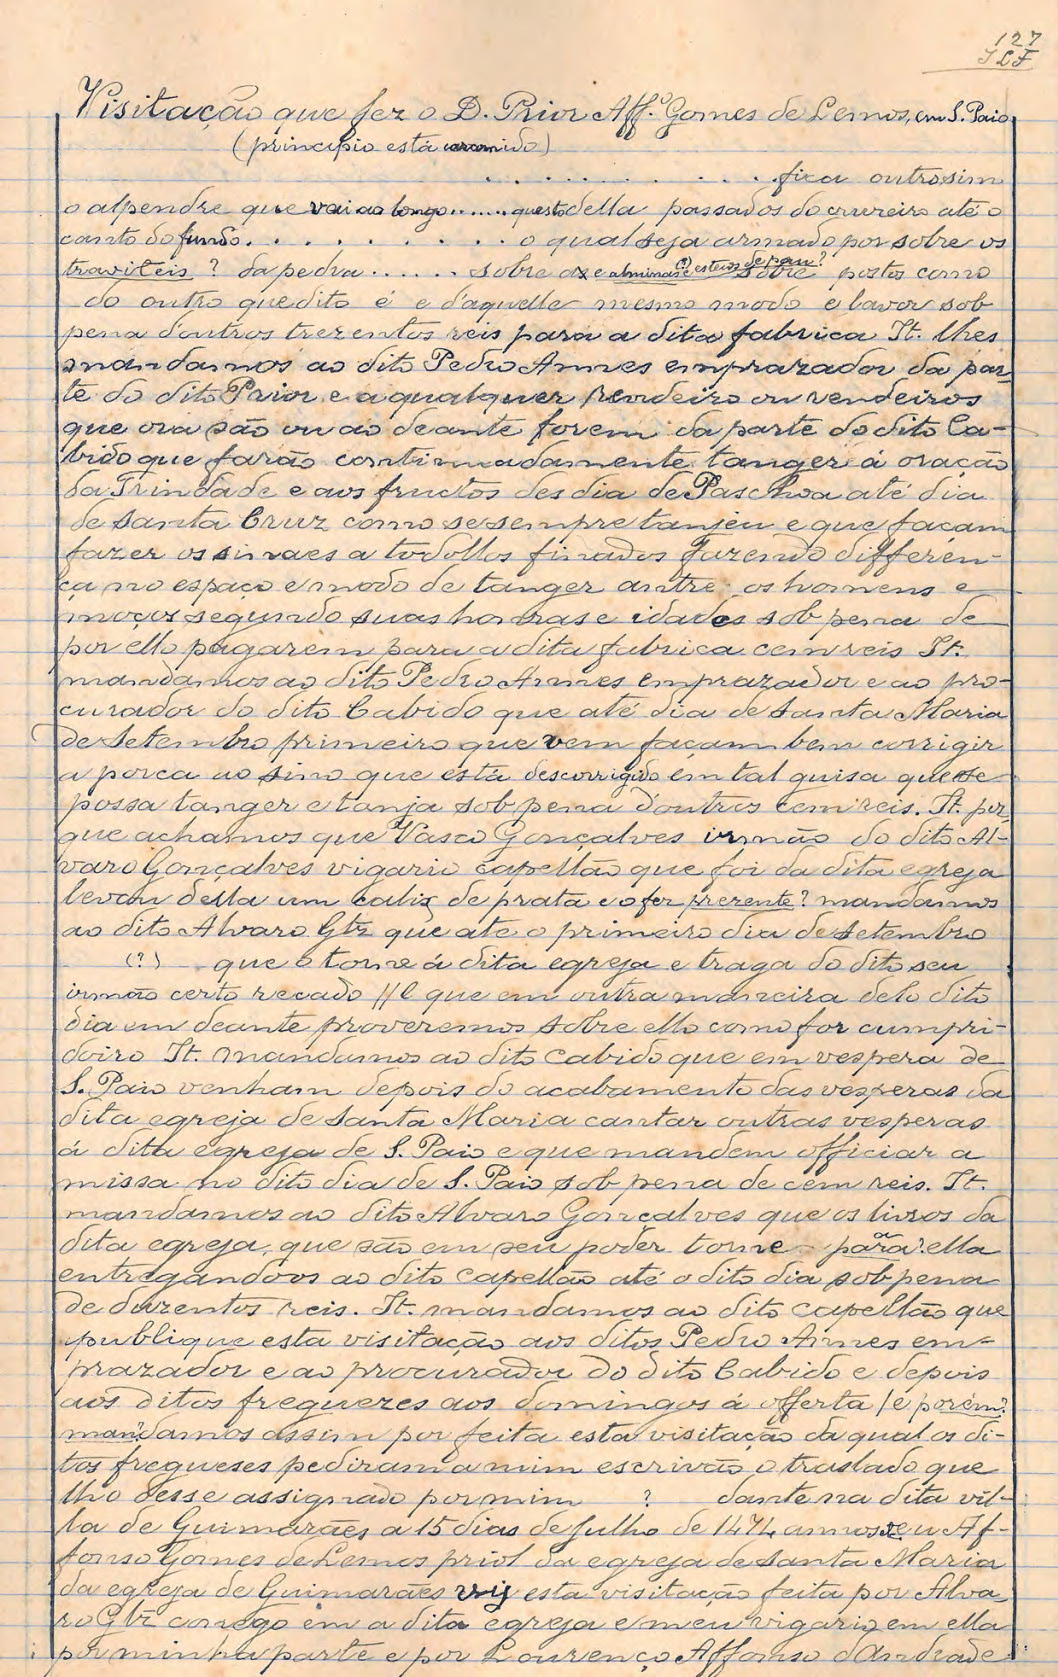 127
Visitação que fez o D. Prior Aff.º Gomes de Lemos, em S. Paio
(principio está carcomido)
. . . . . . . . . . . fica outrosim
o alpendre que vai ao longo...... questo della passados do cruzeiro até o
canto do fundo. . . . . . . . . o qual seja armado por sobre os
traviteis ? da pedra ...... sobre os e alminas (?) e esteios de pau? sobre postos como
do outro que dito é e d'aquelle mesmo modo e lavor sob
pena d'outros trezentos reis para a dita fabrica It. lhes
mandamos ao dito Pedro Annes emprazador da par-
te do dito Prior e a qualquer rendeiro ou vendeiros
que ora são ou ao deante forem da parte do dito Ca-
bido que farão continuadamente tanger á oração
da Trindade e aos fructos des dia de Paschoa até dia
de Santa Cruz como se sempre tanjeu e que façam
fazer os sinaes a todollos finados fazendo differen-
ça no espaço e modo de tanger antre os homens e
moços segundo suas honras e idades sob pena de
por ello pagarem para a dita fabrica cem reis It.
mandamos ao dito Pedro Annes emprazador e ao pro-
curador do dito Cabido que até dia de Santa Maria
de Setembro primeiro que vem façam bem corrigir
a porca ao sino que está descorrigido em tal guisa que se
possa tanger e tanja sob pena d'outros cem reis. It. por
que achamos que Vasco Gonçalves irmão do dito Al-
varo Gonçalves vigario capellão que foi da dita egreja
levou della um calix de prata e o fez prezente? mandamos
ao dito Alvaro Glz que ate o primeiro dia de Setembro
(?) que o torne á dita egreja e traga do dito seu
irmão certo recado // E que em outra maneira delo dito
dia em deante proveremos sobre ello como for cumpri-
doiro It. mandamos ao dito Cabido que em vespera de
S. Paio venham depois do acabamento das vesperas da
dita egreja de Santa Maria cantar outras vesperas
á dita egreja de S. Paio e que mandem officiar a
missa no dito dia de S. Paio sob pena de cem reis. It.
mandamos ao dito Alvaro Gonçalves que os livros da
dita egreja, que são em seu poder torne para? ella
entregandoos ao dito capellão até o dito dia sob pena
de duzentos reis. It. mandamos ao dito capellão que
publique esta visitação aos ditos Pedro Annes em-
prazador e ao procurador do dito Cabido e depois
aos ditos freguezes aos domingos á offerta / e porém?
man?damos assim por feita esta visitação da qual os di-
tos fregueses pediram a mim escrivão o traslado que
lh'o desse assignado por mim ? dante na dita vil-
la de Guimarães a 15 dias de Julho de 1474 annos eu Af-
fonso Gomes de Lemos priol da egreja de Santa Maria
da egreja de Guimarães vij esta visitação feita por Alva-
ro Glz conego em a dita egreja e meu vigario em ella
por minha parte e por Lourenço Affonso d'Andrade